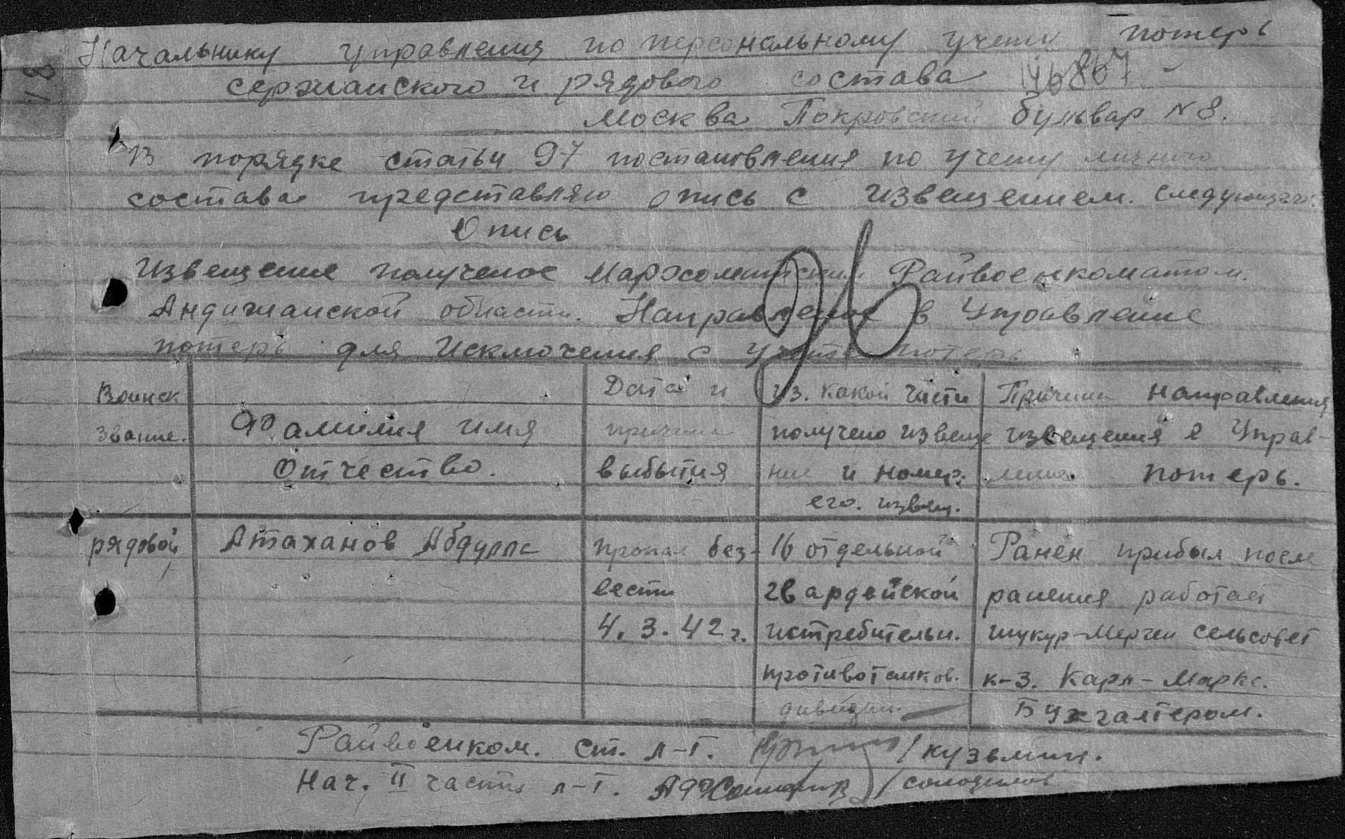 18
Начальнику управления по персональному учету потерь
сержанского и рядового состава
Москва Покровский бульвар N 8.
В порядке статьи 97 постановления по учету личного
состава представляю опись с извещением. следующаго:
Опись
96
Извещение полученое Райвоенкоматом.
Андижанской области. Направленое в Управление
потерь для Исключения с учета потерь
Воинск звание.
Фамилия имя Отчество.
Дата и причина выбытия
из. какой части получено извеще ние и номер. его. извещ.
Причина направления извещения в Управ- потерь.
рядовой
Атаханов Абдулла
пропал без- вести 4.3.42г.
16 отдельной гвардейской истребительн. противотанков. дивизии.
Ранен прибыл после ранения работает сельсовет к-з. Карл-Маркс. Бухгалтером.
Райвоенком. ст. л-т. /кузьмин.
Нач. II части л-т.